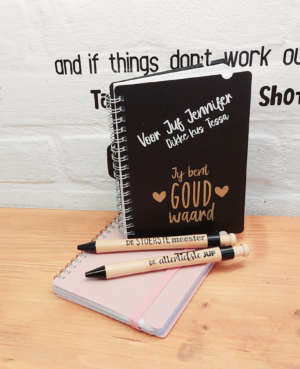 and if things don't work ou
Ta
Shot
Voor Juf Jennifer
Dikke kus Tessa
Jy bent
GOUD
waard
De STOERSTE meester
De allerliefste JUF